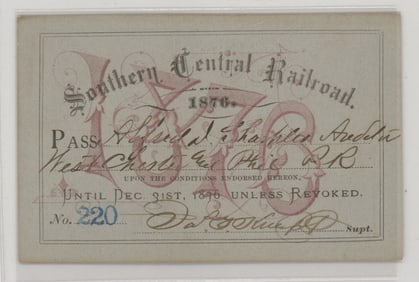 Southern Central Railroad.
1876.
PASS Alfred D. Sharples Auditor
West Chester and Phil RR
UPON THE CONDITIONS ENDORSED HEREON,
UNTIL DEC. 31ST, 1876 UNLESS REVOKED.
No. 220 Supt.